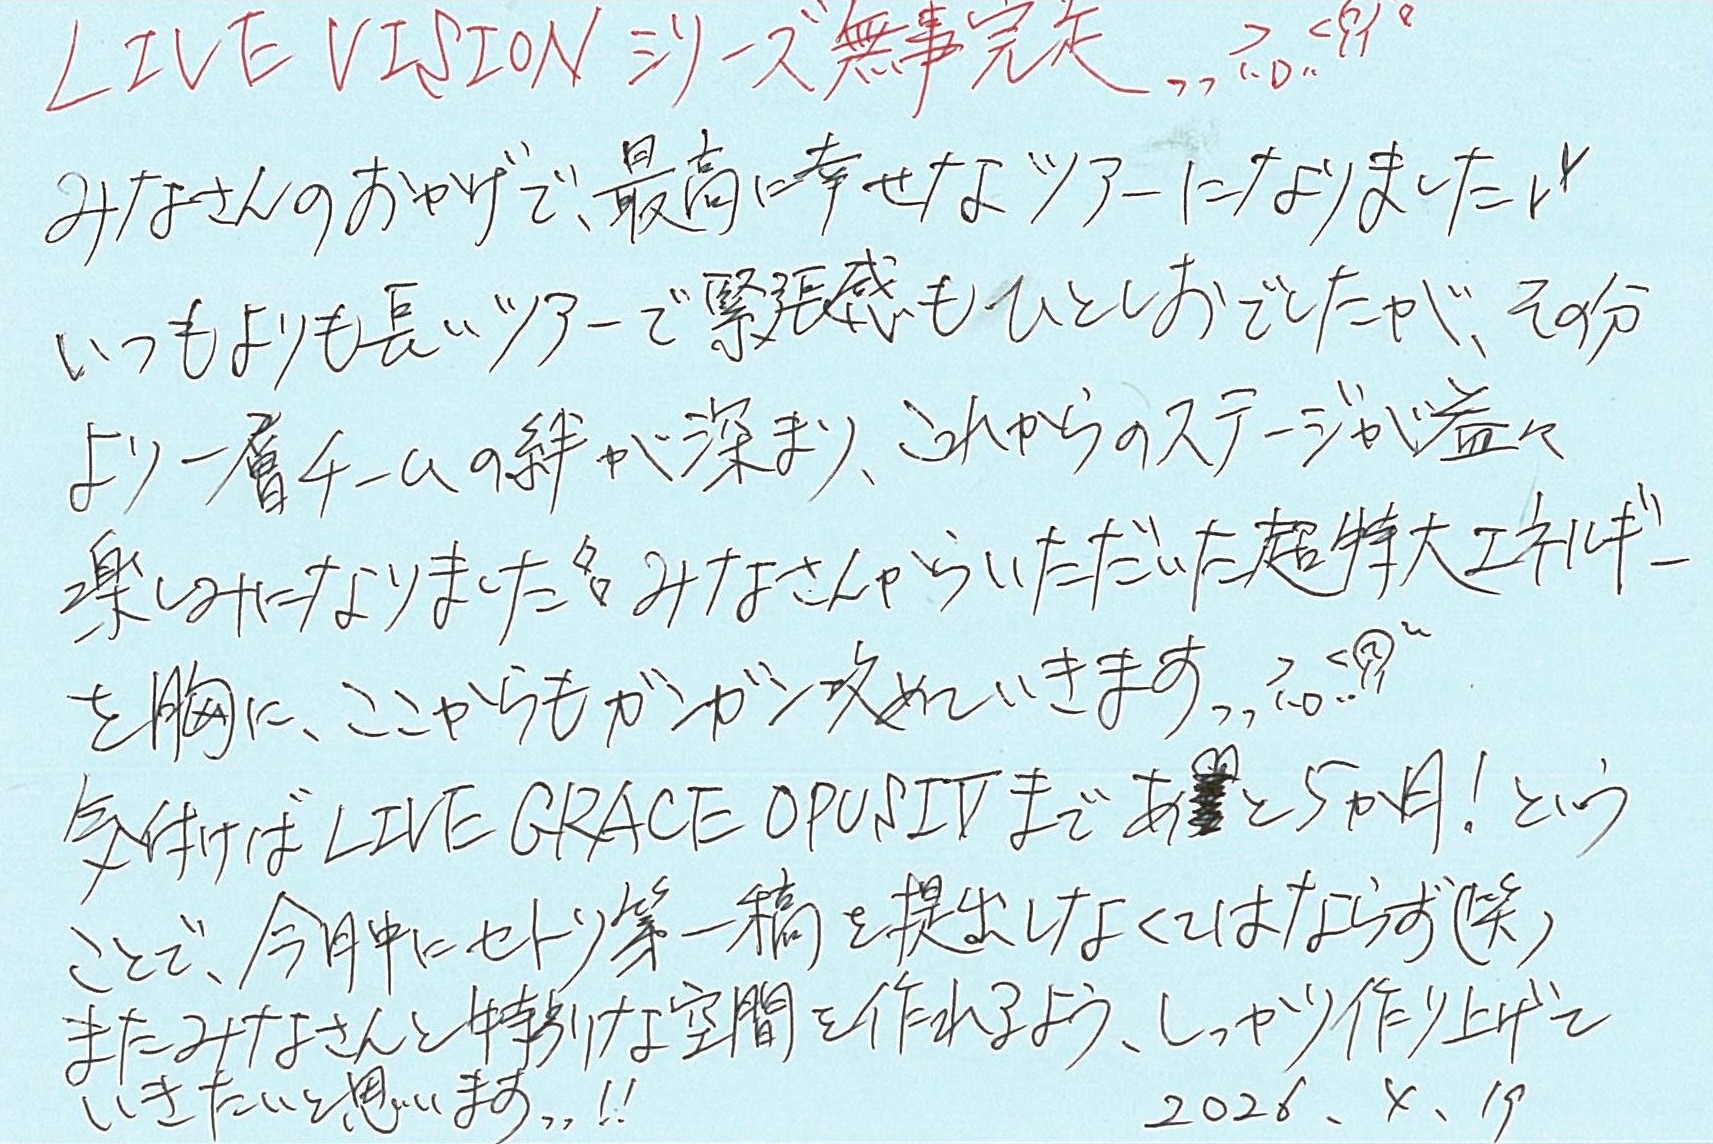 LIVE VISION シリーズ無事完走
みなさんのおかげで、最高に幸せなツアーになりました
いつもよりも長いツアーで緊張感もひとしおでしたが、その分
より一層チームの絆が深まり、これからのステージが益々
楽しみになりました みなさんからいただいた超特大エネルギー
を胸に、ここからもガンガン攻めていきます
気付けば LIVE GRACE OPUSⅣ まで あと5か月!という
ことで、今月中にセトリ第一稿を提出しなくてはならず(笑)
またみなさんと特別な空間を作れるよう、しっかり作り上げて
いきたいと思います!!
2026.4.19